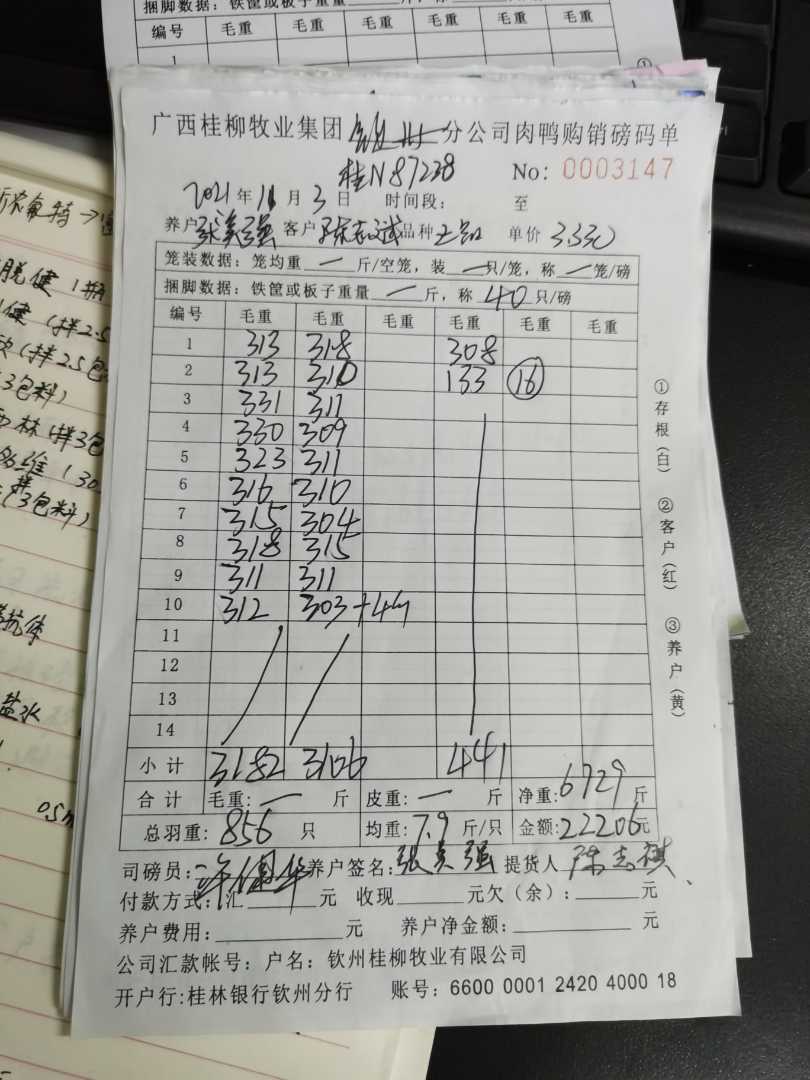 捆脚数据：铁筐或板子重量
编号 毛重 毛重 毛重 毛重 毛重 毛重
1
广西桂柳牧业集团 分公司肉鸭购销磅码单
桂N87228
No: 0003147
2021年11月3日 时间段： 至
养户 张美强 客户 陈志斌 品种 单价 3.330
笼装数据：笼均重 — 斤/空笼，装 — 只/笼，称 — 笼/磅
捆脚数据：铁筐或板子重量 — 斤，称 40 只/磅
编号 毛重 毛重 毛重 毛重 毛重 毛重
1 313 318 308
2 313 310 133 16
3 331 311
4 330 309
5 323 311
6 316 310
7 315 304
8 318 315
9 311 311
10 312 303+4
11
12
13
14
小计 3182 3106 441
合计 毛重：— 斤 皮重：— 斤 净重：6729 斤
总羽重：856 只 均重：7.9 斤/只 金额：22206元
司磅员： 养户签名：张美强 提货人 陈志祺
付款方式：汇 元 收现 元欠（余）： 元
养户费用： 元 养户净金额： 元
公司汇款帐号：户名：钦州桂柳牧业有限公司
开户行:桂林银行钦州分行 账号：6600 0001 2420 4000 18
①存根（白） ②客户（红） ③养户（黄）
脱健 1瓶
健（拌2.5
（拌2.5包
3包料）
林（拌3包
维（30
（3包料）
抗体
盐水
0.5m